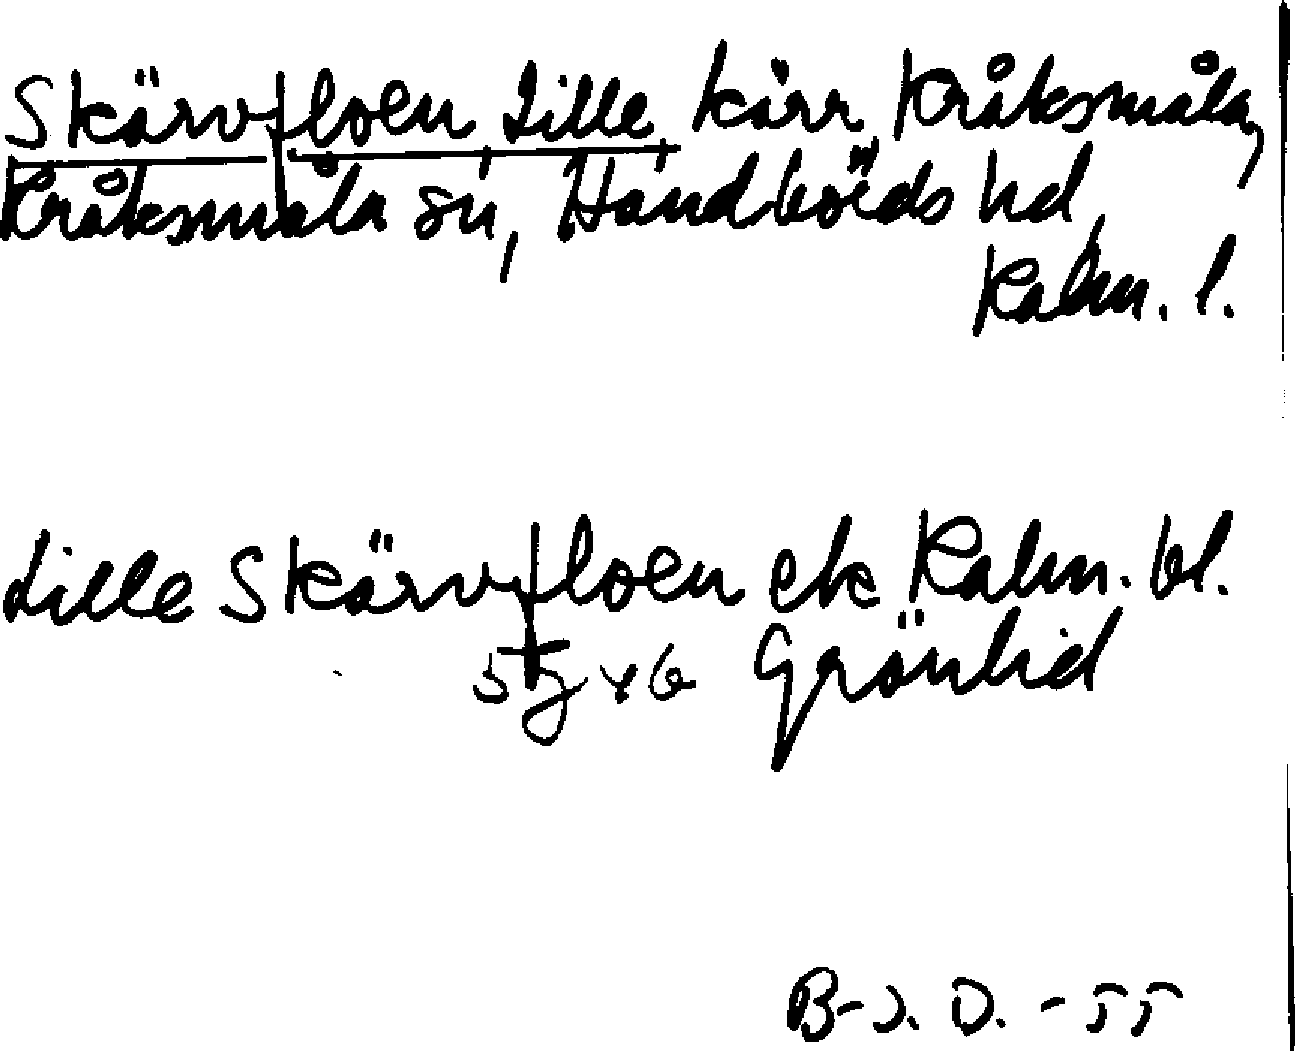 Skärvfloen, Lille, kärr, Kråksmåla,
Kråksmåla sn, Handbörds hd,
Kalm. l.
Lille Skärvfloen ek Kalm. bl.
5 g v 6 Grönlid
B-J. O. -55